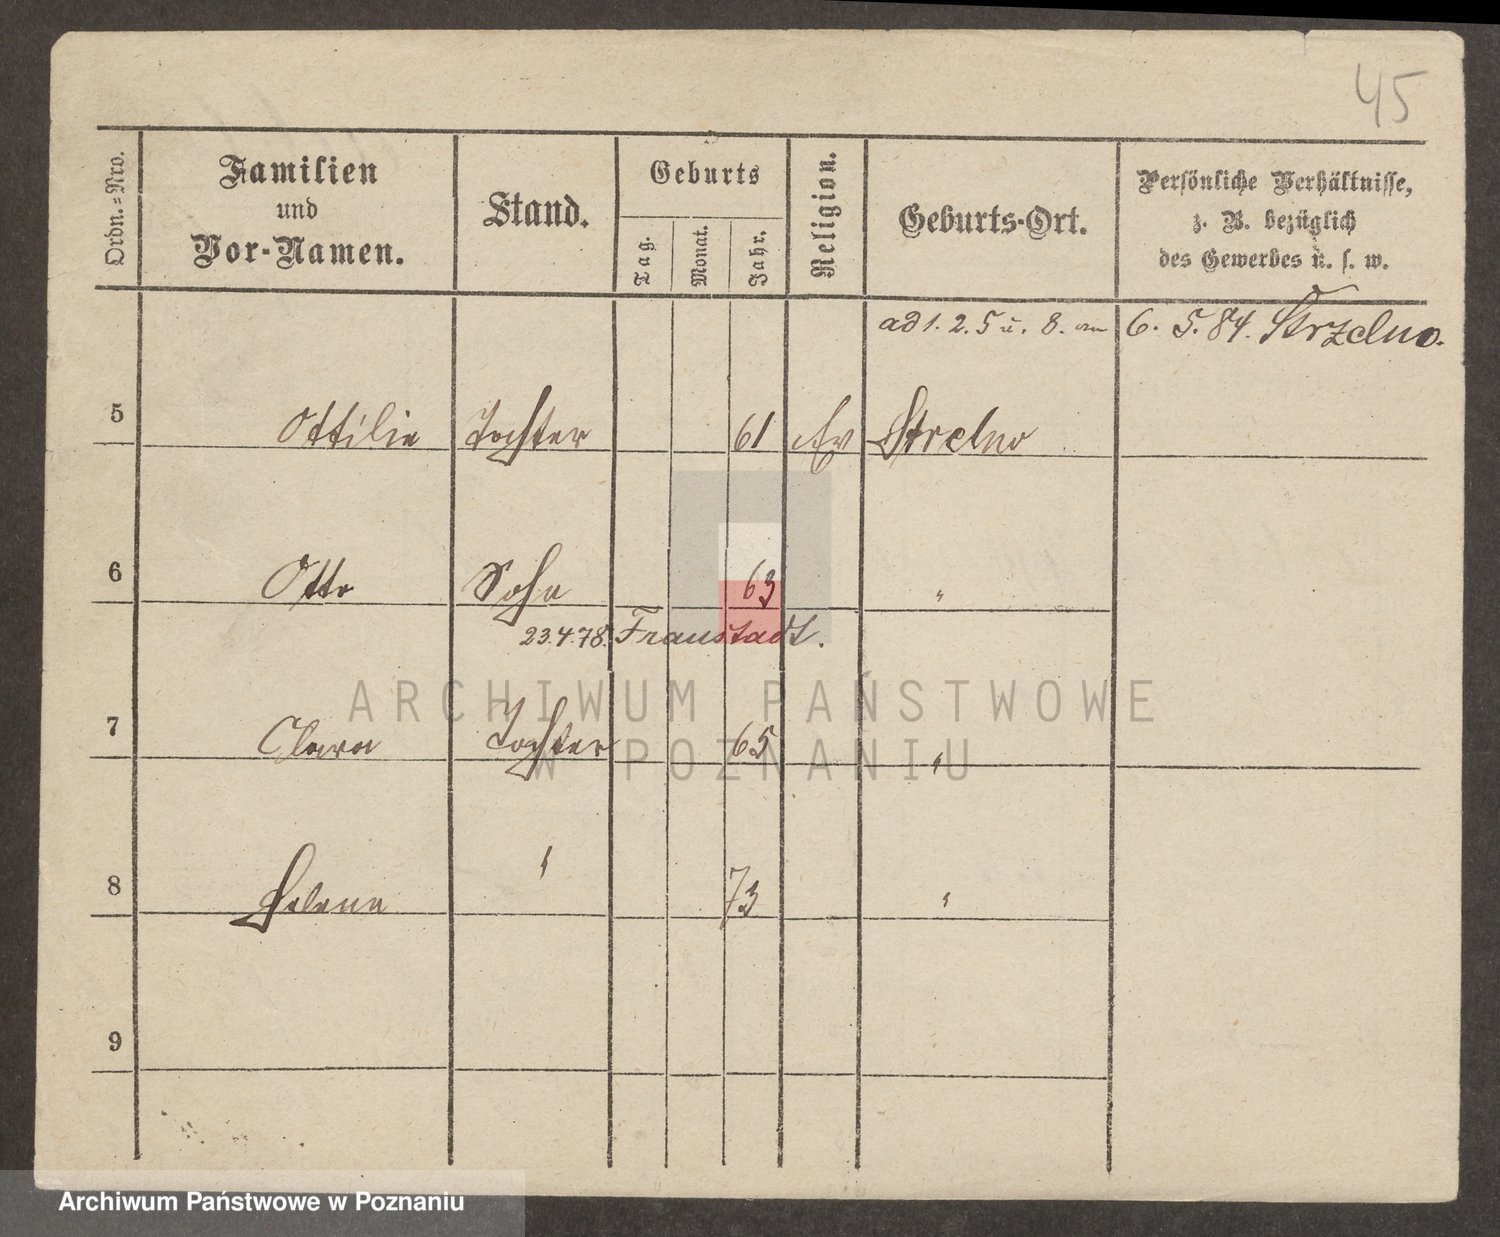 45
Ordn.=Nro.
Familien
und
Vor-Namen.
Stand.
Geburts
Tag.
Monat.
Jahr.
Religion.
Geburts-Ort.
Persönliche Verhältnisse,
z. B. bezüglich
des Gewerbes u. s. w.
ad 1. 2. 5 u. 8. am 6. 5. 84. Strzelno.
5 Ottilie Tochter 61 Ev Strelno
6 Otto Sohn 63 "
23.4.78. Fraustadt.
7 Clara Tochter 65 "
8 Helene " 73 "
9
ARCHIWUM PAŃSTWOWE
W POZNANIU
Archiwum Państwowe w Poznaniu